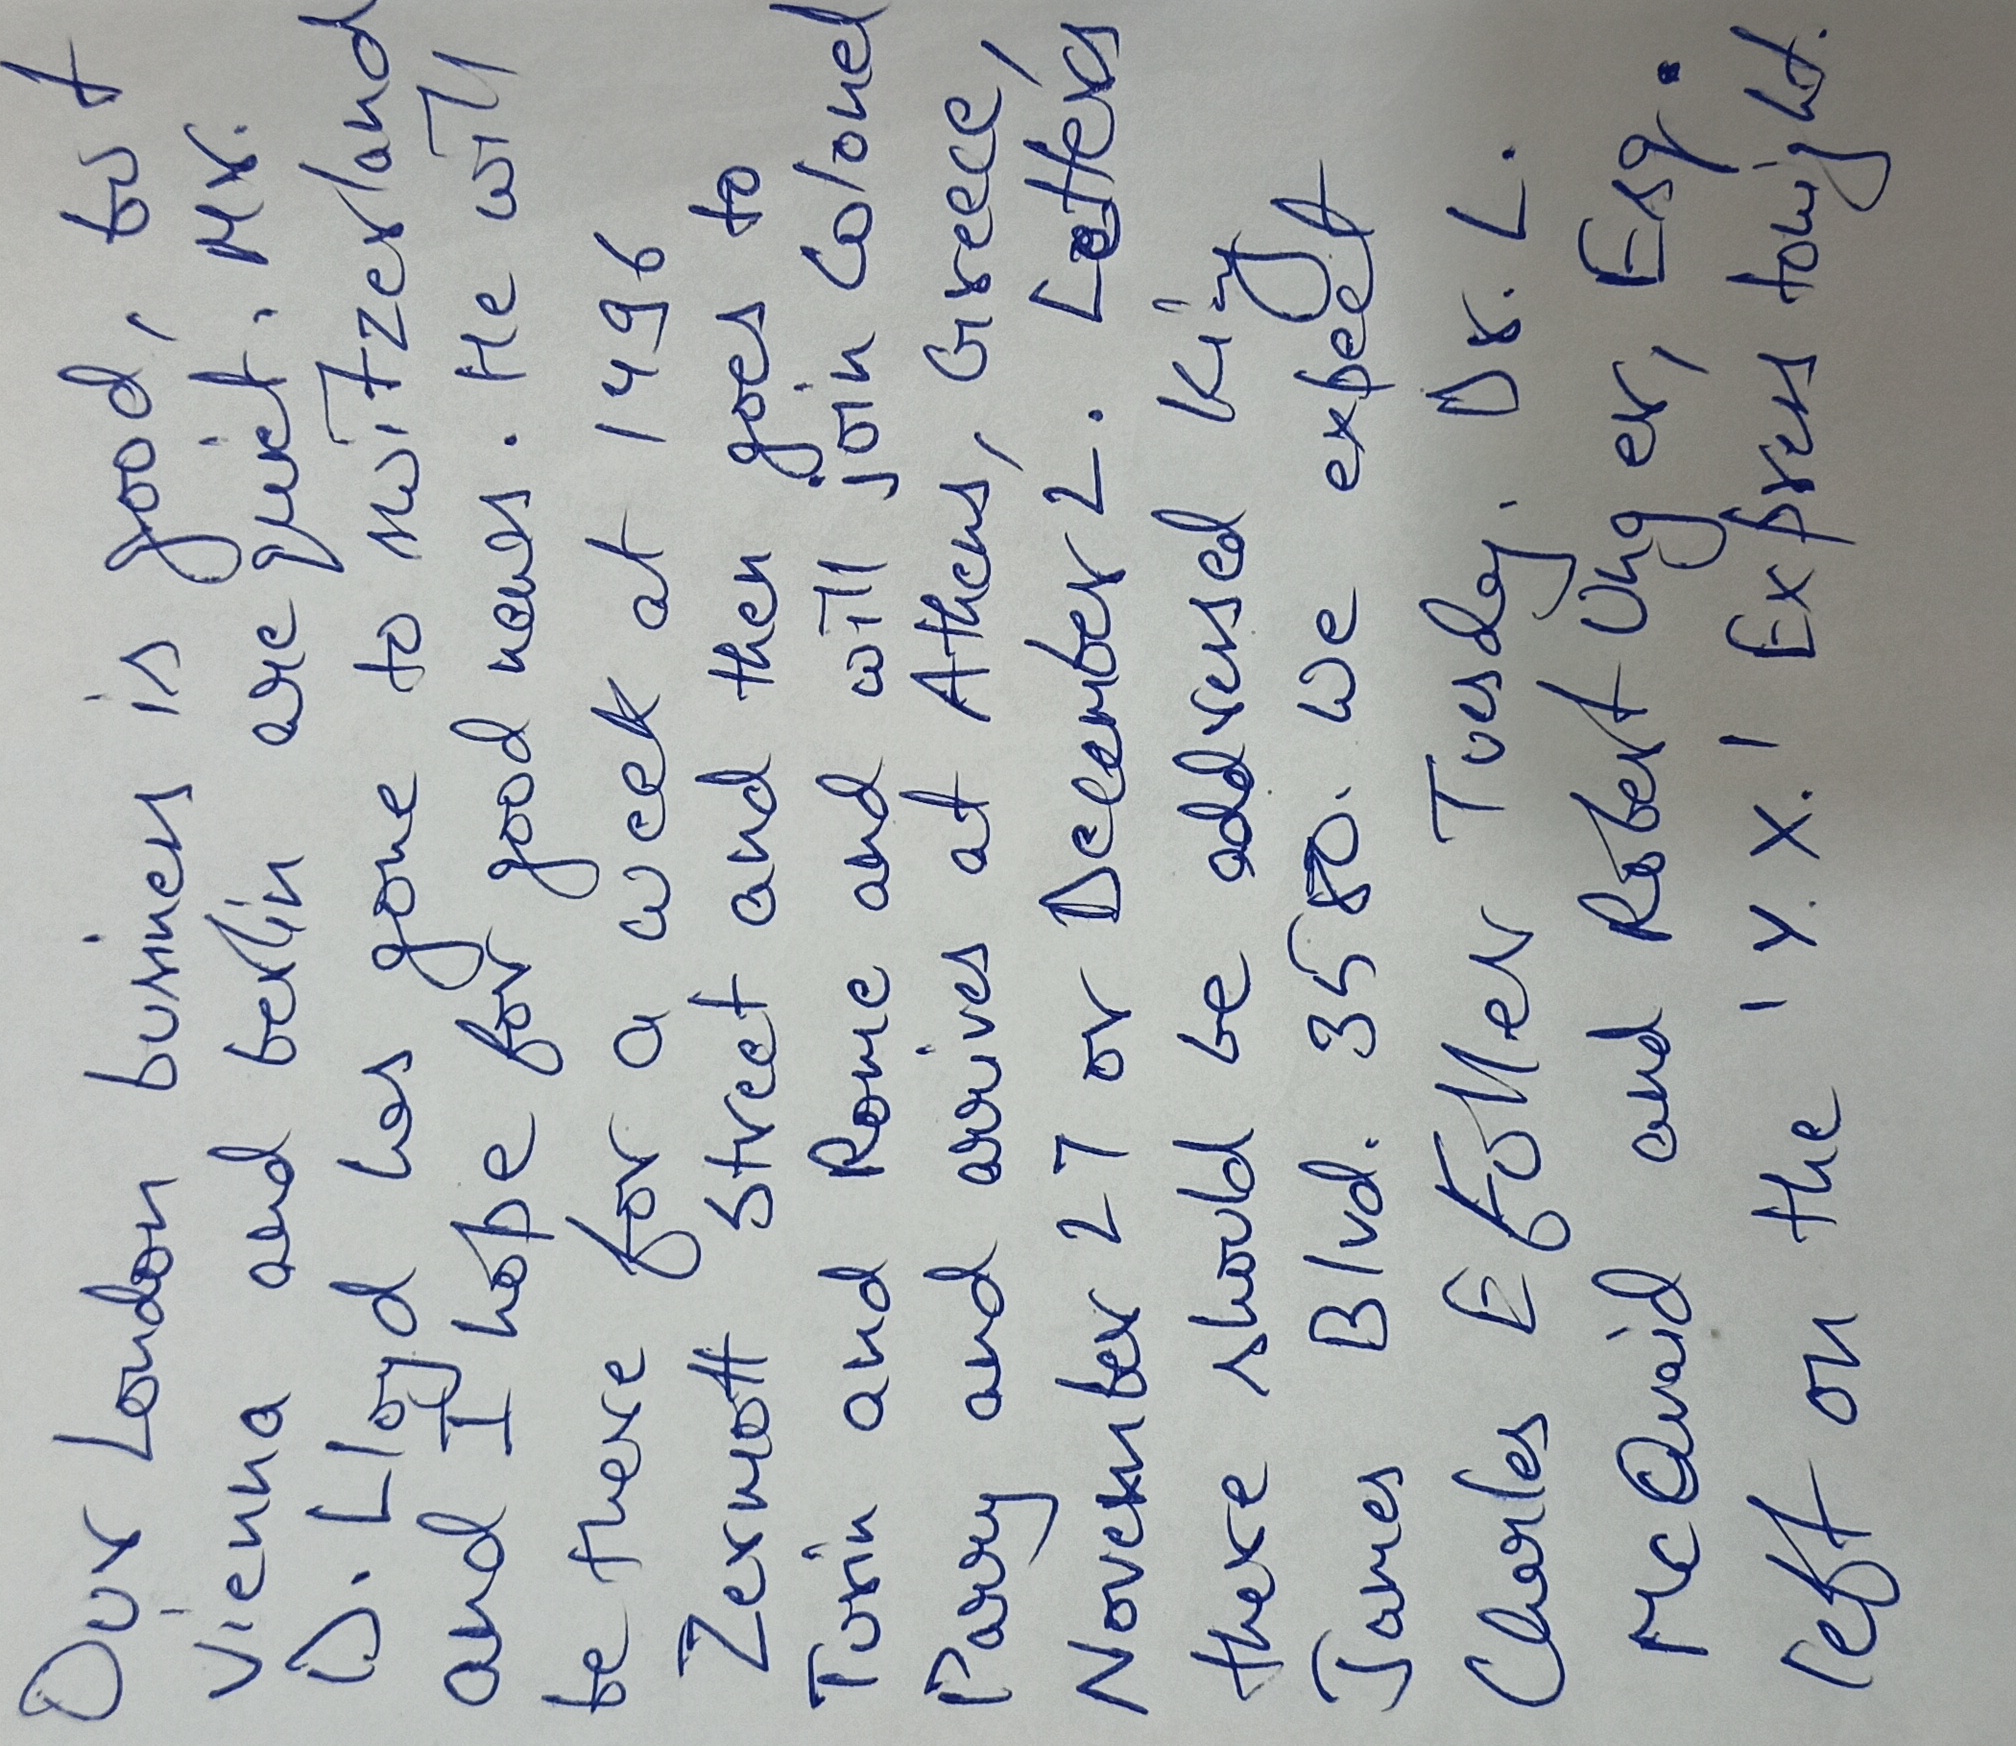 Our London business is good, but
Vienna and berlin are quiet. Mr.
D. Lloyd has gone to switzerland
and I hope for good news. He will
be there for a week at 1496
Zermott Street and then goes to
Turin and Rome and will join Colonel
Parry and arrives at Athens, Greece,
November 27 or December 2. Letters
there should be addressed King
James Blvd. 3580. We expect
Charles Eftoller Tuesday. Dr. L.
McQuaid and Robert Unger, Esq.
left on the 'Y.X.' Express tonight.